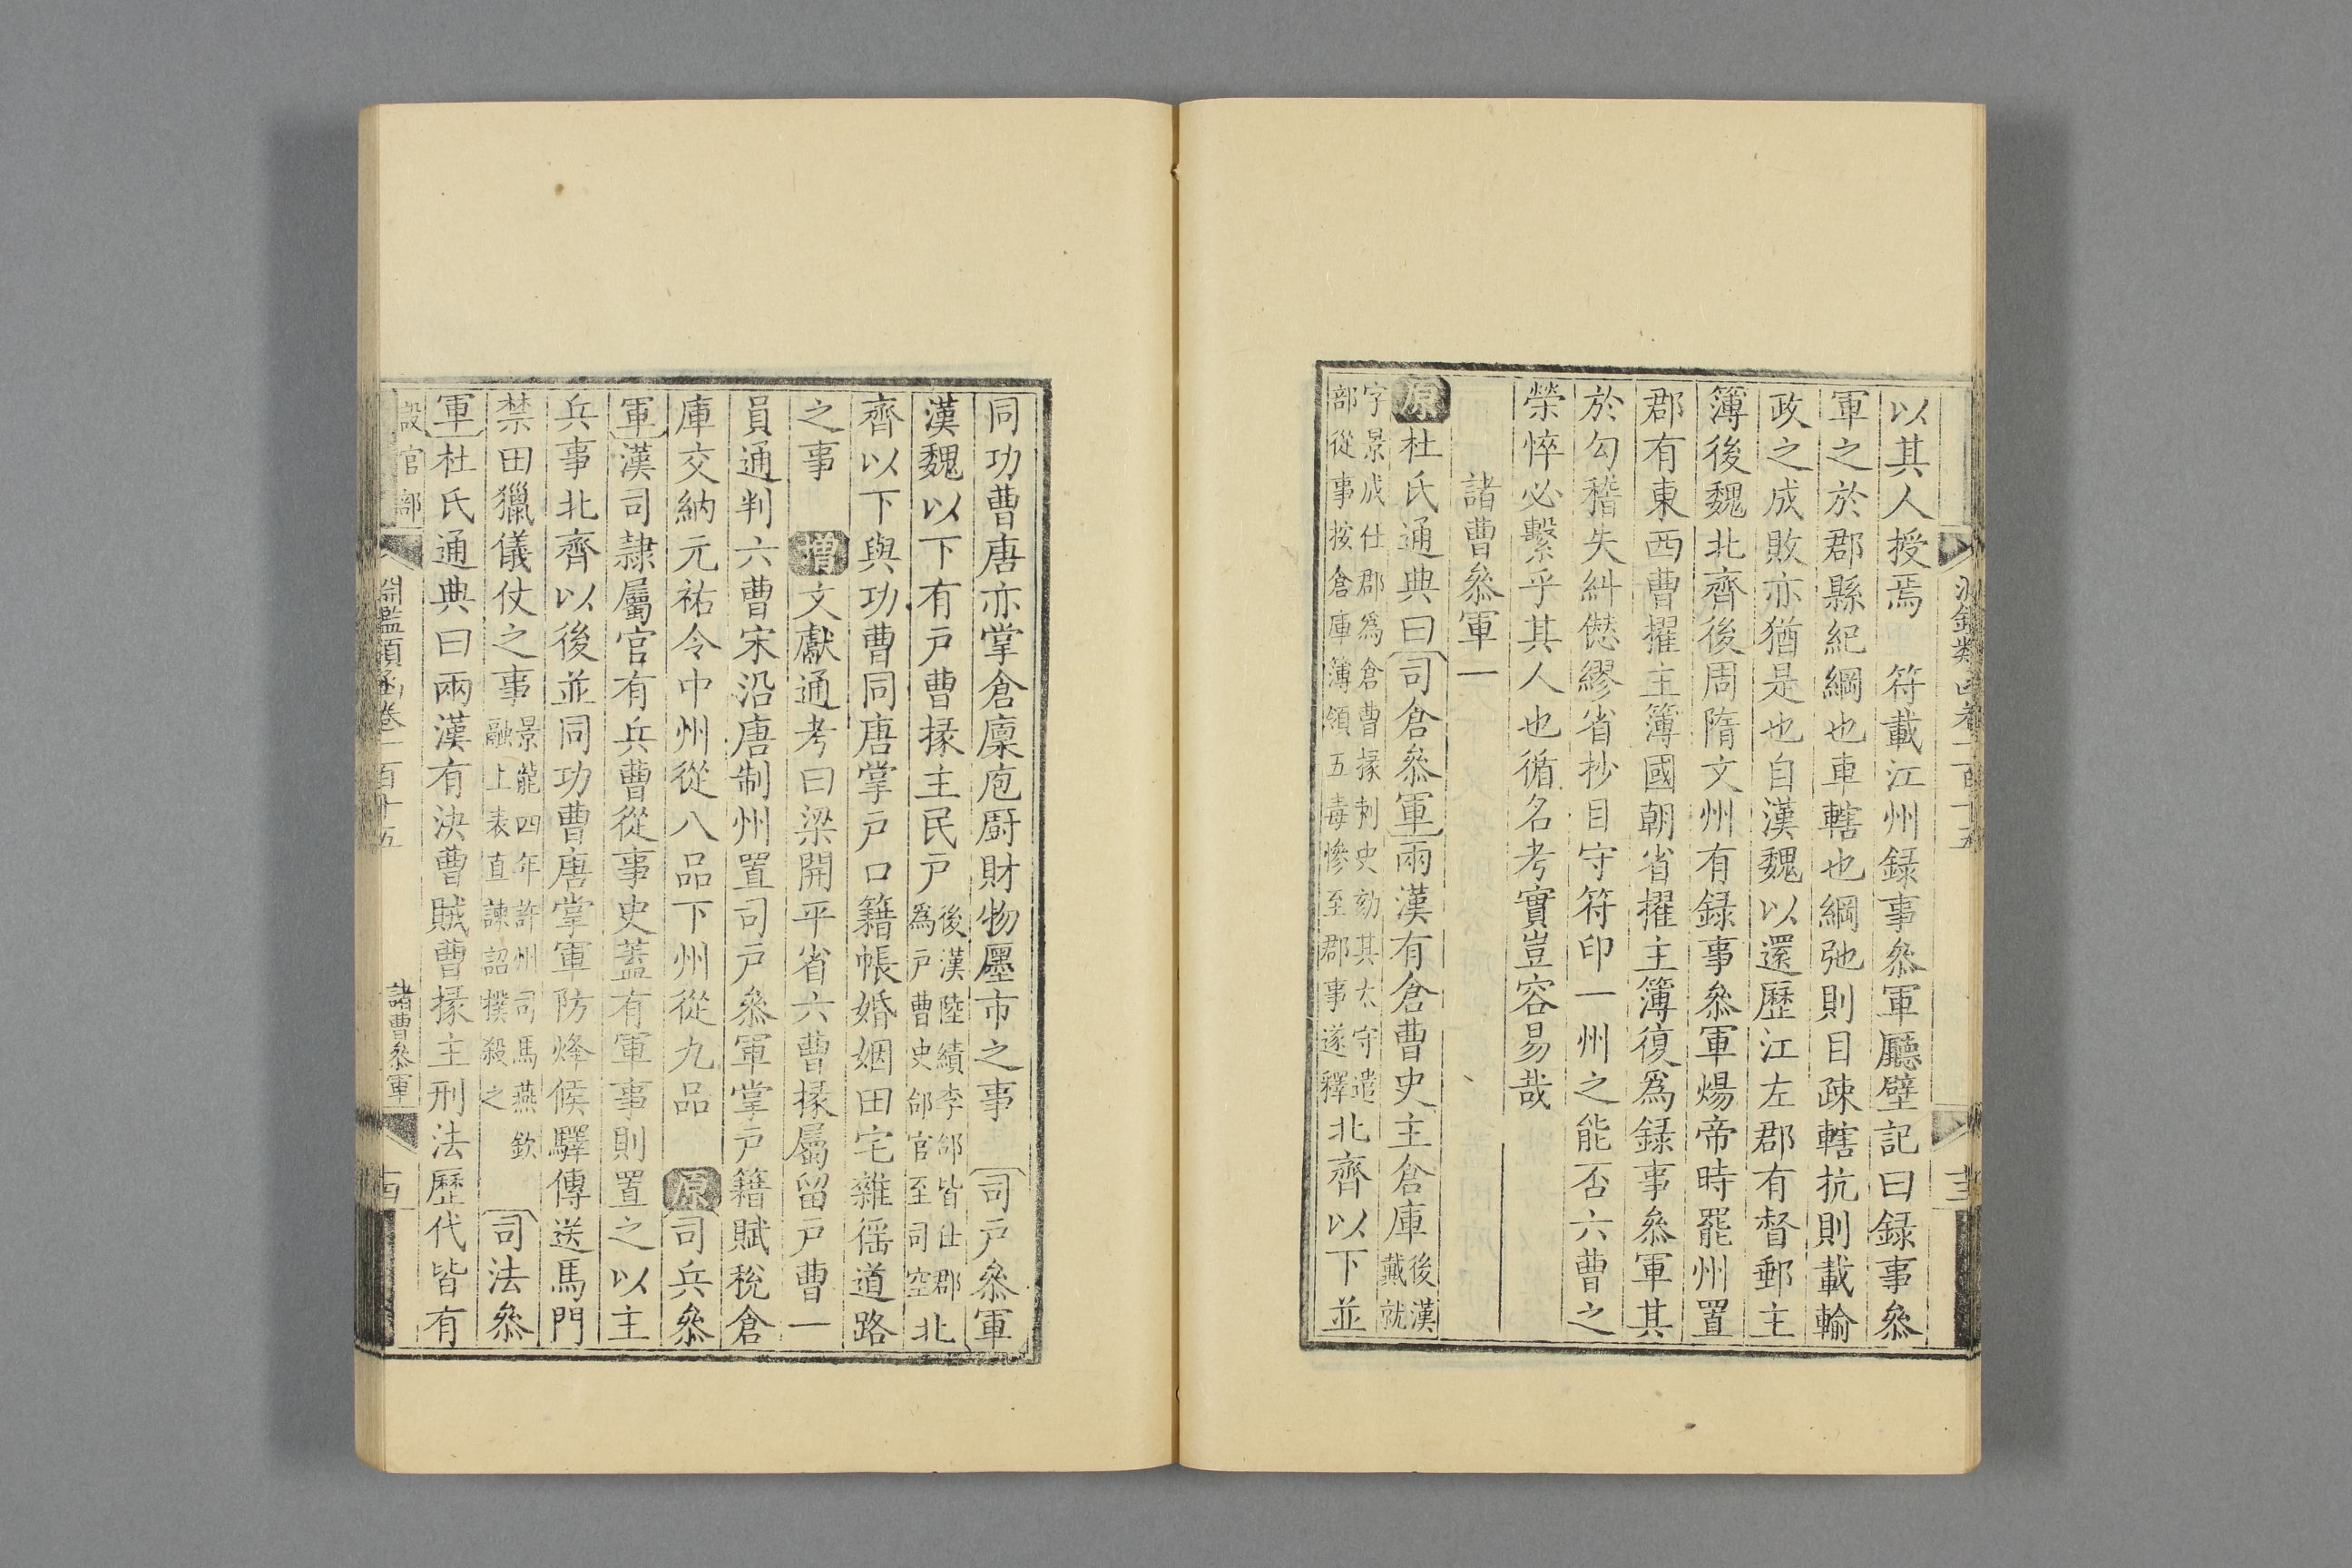 以其人授焉　符載江州録事叅軍廳壁記曰録事叅
軍之於郡縣紀綱也車轄也綱弛則目疎轄抗則載輸
政之成敗亦猶是也自漢魏以還歷江左郡有督郵主
簿後魏北齊後周隋文州有録事叅軍煬帝時罷州置
郡有東西曹擢主簿國朝省擢主簿復爲録事叅軍其
於勾稽失糾愆繆省抄目守符印一州之能否六曹之
榮悴必繫乎其人也循名考實豈容易哉
諸曹叅軍一
原杜氏通典曰司倉叅軍兩漢有倉曹史主倉庫後漢戴就
字景成仕郡爲倉曹掾刺史劾其太守遣
部從事按倉庫簿領五毒慘至郡事遂釋北齊以下並
同功曹唐亦掌倉廩庖厨財物廛市之事　司戶叅軍
漢魏以下有戶曹掾主民戶後漢陸續李郃皆仕郡
爲戶曹史郃官至司空北
齊以下與功曹同唐掌戶口籍帳婚姻田宅雜徭道路
之事　增文獻通考曰梁開平省六曹掾屬留戶曹一
員通判六曹宋沿唐制州置司戶叅軍掌戶籍賦稅倉
庫交納元祐令中州從八品下州從九品　原司兵叅
軍漢司隷屬官有兵曹從事史蓋有軍事則置之以主
兵事北齊以後並同功曹唐掌軍防烽候驛傳送馬門
禁田獵儀仗之事景龍四年許州司馬燕欽
融上表直諫詔撲殺之　司法叅
軍杜氏通典曰兩漢有決曹賊曹掾主刑法歷代皆有
設官部
淵鑑類函卷一百十五
諸曹叅軍